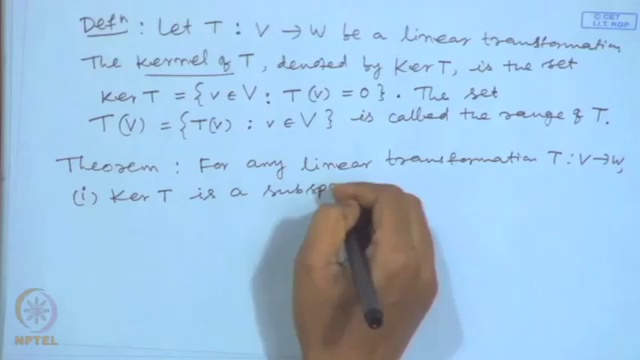 © CET
I.I.T. KGP
Defⁿ: Let T : V → W be a linear transformation
The Kernel of T, denoted by Ker T, is the set
Ker T = {v ∈ V : T(v) = 0}. The set
T(V) = {T(v) : v ∈ V} is called the range of T.
Theorem : For any linear transformation T : V → W,
(i) Ker T is a subsp
NPTEL